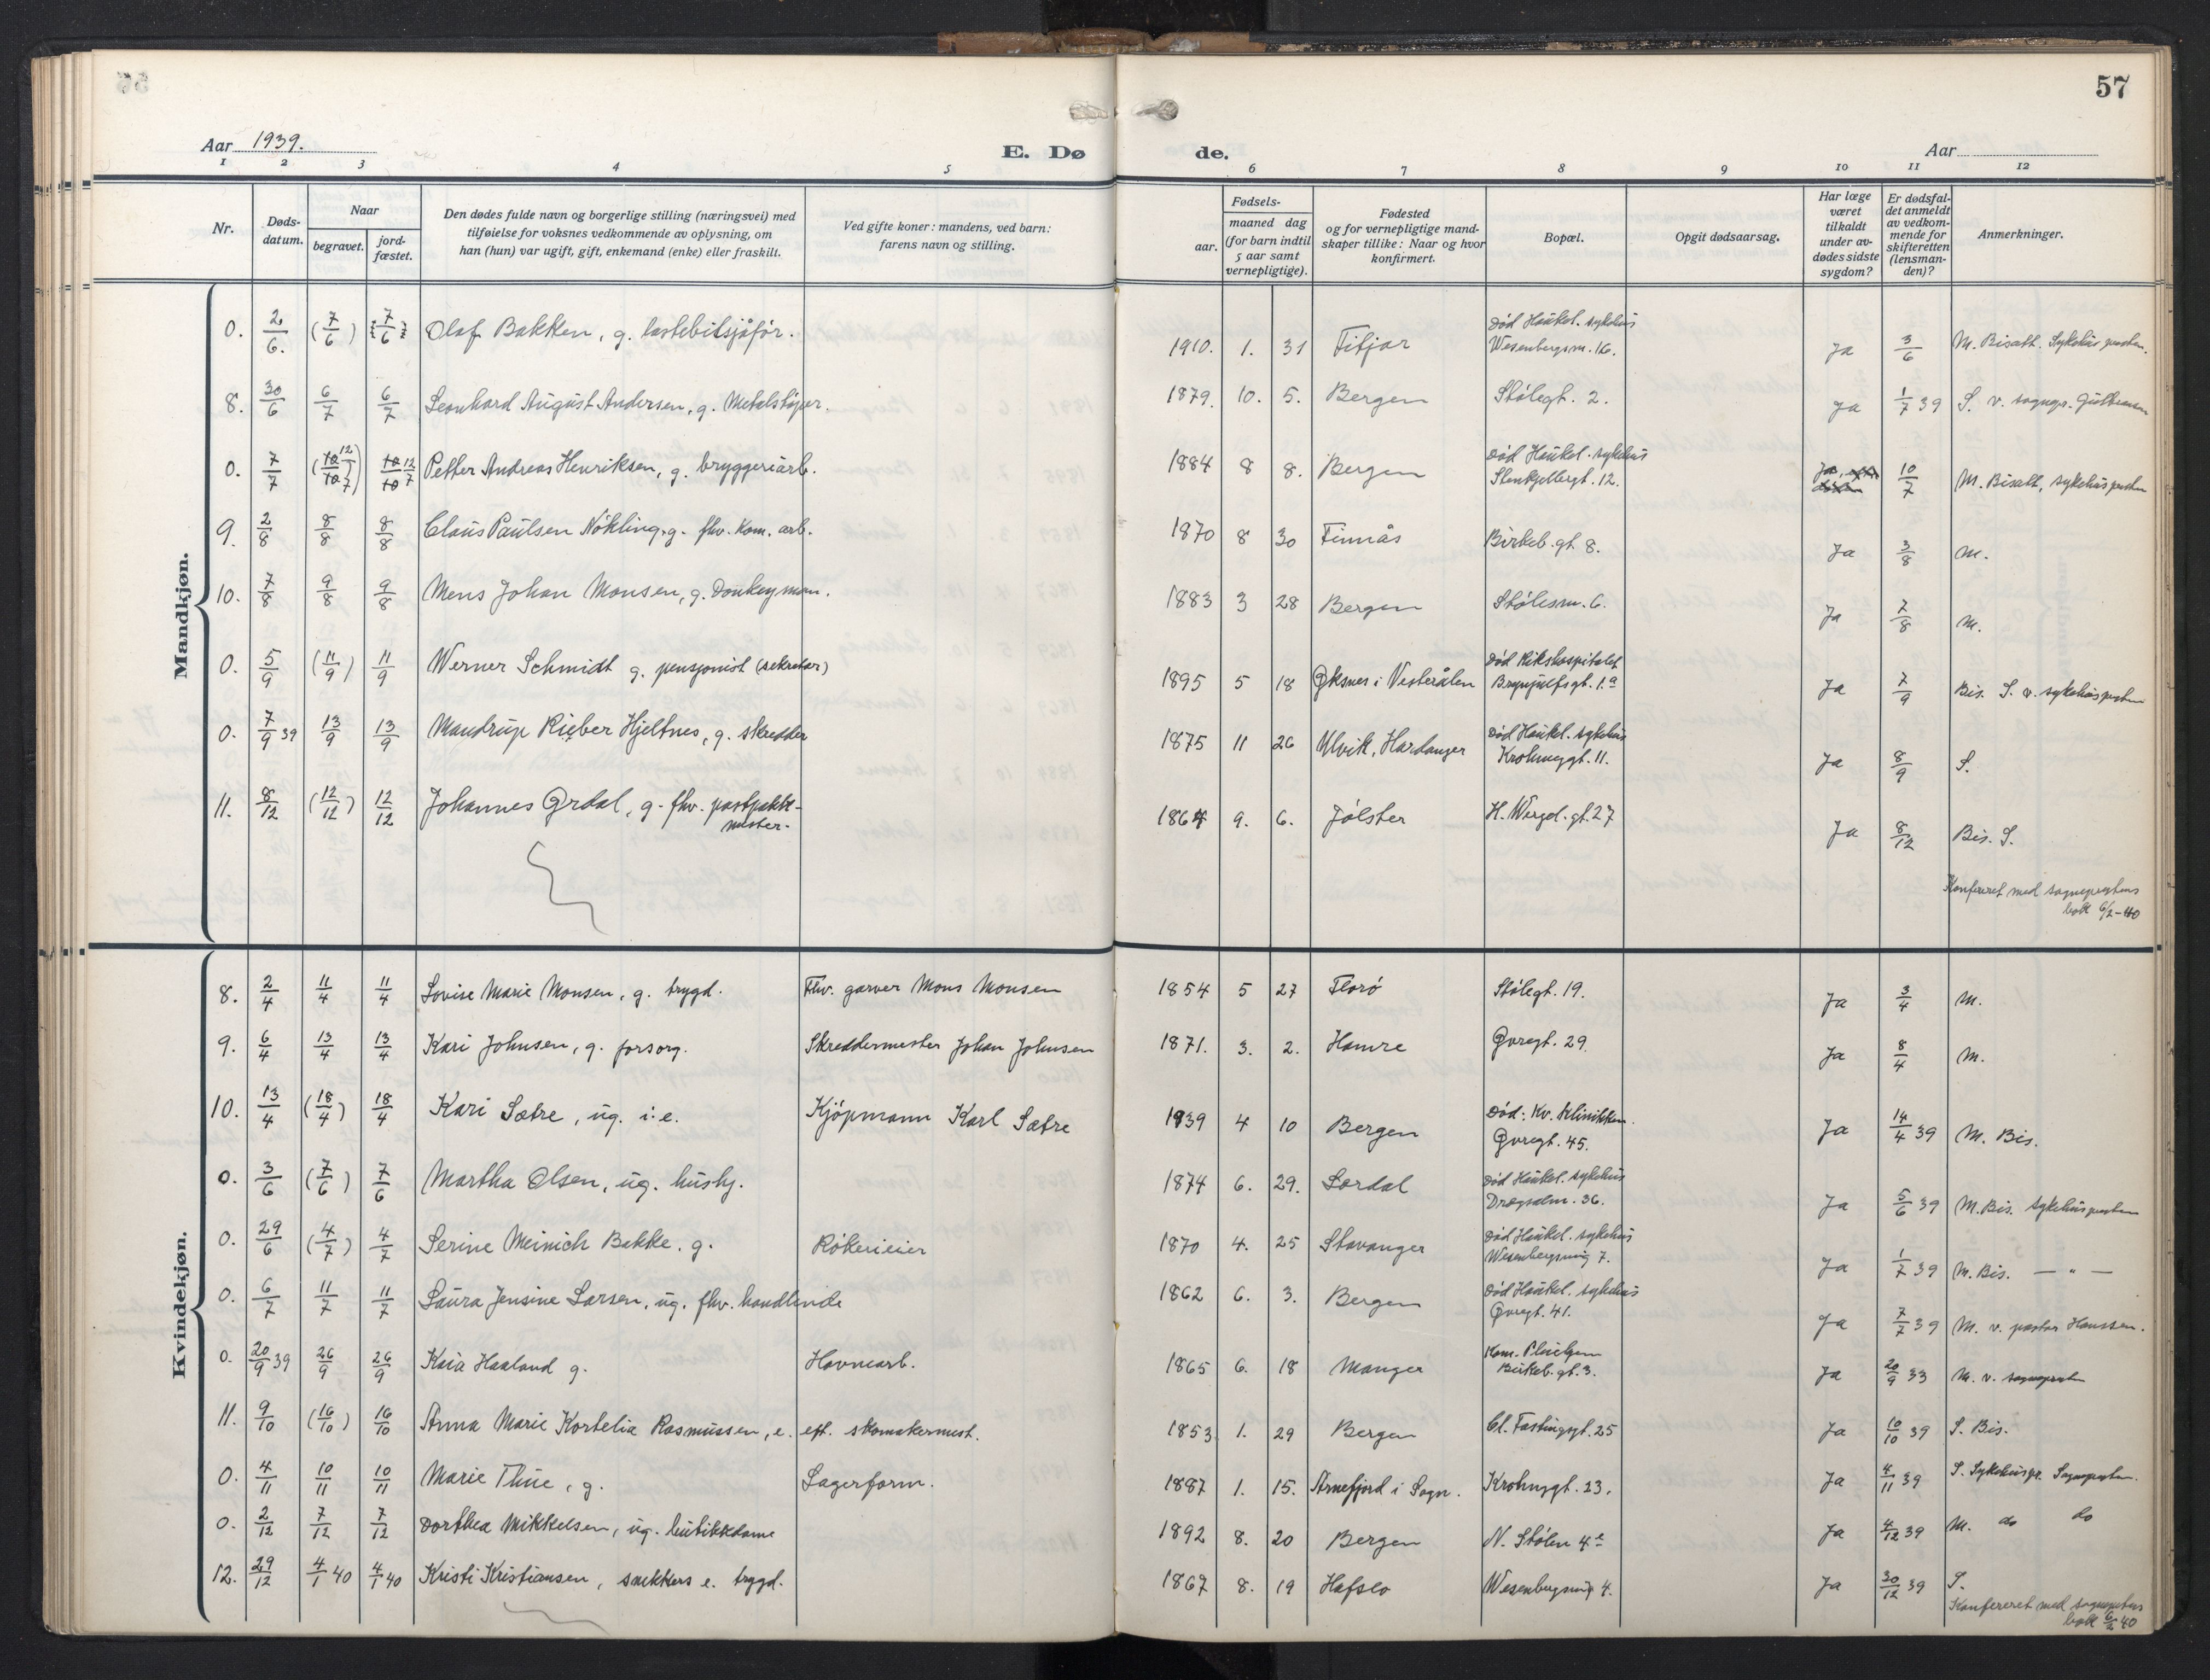 57
Aar 1939.
E. Dø
de.
Aar
1 2 3 4 5 6 7 8 9 10 11 12
Nr.
Døds-
datum.
Naar
begravet.
jord-
fæstet.
Den dødes fulde navn og borgerlige stilling (næringsvei) med
tilføielse for voksnes vedkommende av oplysning, om
han (hun) var ugift, gift, enkemand (enke) eller fraskilt.
Ved gifte koner: mandens, ved barn:
farens navn og stilling.
Fødsels-
aar.
maaned dag
(for barn indtil
5 aar samt
vernepligtige).
Fødested
og for vernepligtige mand-
skaper tillike: Naar og hvor
konfirmert.
Bopæl.
Opgit dødsaarsag.
Har læge
været
tilkaldt
under av-
dødes sidste
sygdom?
Er dødsfal-
det anmeldt
av vedkom-
mende for
skifteretten
(lensman-
den)?
Anmerkninger.
Mandkjøn.
0. 2/6. (7/6) 7/6 Olaf Bakken, g. lastebilsjåfør. 1910. 1. 31 Fitjar Død Haukel. sykehus Wesenbergsm. 16. Ja 3/6 M. Bisatt. Sykehuspresten.
8. 30/6 6/7 6/7 Leonhard August Andersen, g. Metalstøper. 1879. 10. 5. Bergen Stølegt. 2. Ja 1/7 39 S. v. sognepr. Gulbransen
0. 7/7 (12/7) 12/7 Petter Andreas Henriksen, g. bryggeriarb. 1884 8 8. Bergen Død Haukel. sykehus Stenkjellergt. 12. Ja 10/7 M. Bisatt, sykehuspresten
9. 2/8 8/8 8/8 Claus Paulsen Nökling, g. fhv. kom. arb. 1870 8 30 Finnås Birkeb. gt. 8. Ja 3/8 M.
10. 7/8 9/8 9/8 Mons Johan Monsen, g. Donkeyman. 1883 3 28 Bergen Stølesm. 6. Ja 7/8 M.
0. 5/9 (11/9) 11/9 Werner Schmidt g. pensjonist (sekretær) 1895 5 18 Øksnes i Vesterålen Død Rikshospitalet Brynjulfsgt. 1.a Ja 7/9 Bis. S. v. sykehuspresten
0. 7/9 39 13/9 13/9 Mandrup Rieber Hjeltnes, g. skredder 1875 11 26 Ulvik, Hardanger Død Haukel. sykehus Krohneggt. 11. Ja 8/9 S.
11. 8/12 (12/12) 12/12 Johannes Ørdal, g. fhv. postpakk-
mester. 1864 9. 6. Jølster H. Wergel. gt. 27 Ja 8/12 Bis. S.
Konfereret med sogneprestens
bok 6/2-40
Kvindekjøn.
8. 2/4 11/4 11/4 Lovise Marie Monsen, g. trygd. Fhv. garver Mons Monsen 1854 5 27 Florø Stølegt. 19. Ja 3/4 M.
9. 6/4 13/4 13/4 Kari Johnsen, g. forsorg. Skreddermester Johan Johnsen 1871. 3. 2. Hamre Øvregt. 29. Ja 8/4 M.
10. 13/4 (18/4) 18/4 Kari Sætre, ug. i: e. Kjøpmann Karl Sætre 1939 4 10 Bergen Død: Kv. klinikken. Øvregt. 45. Ja 14/4 39 M. Bis.
0. 3/6 (7/6) 7/6 Martha Olsen, ug. hushj. 1874 6. 29. Død Haukel. sykehus Dregsalm. 36. Ja 5/6 39 M. Bis. sykehuspresten
0. 29/6 (4/7) 4/7 Serine Meinich Bakke. g. Røkerieier 1870 4. 25 Stavanger Død Haukel. sykehus Wesenbergsmug 7. Ja 1/7 39 M. Bis. — " —
0. 6/7 11/7 11/7 Laura Jensine Larsen, ug. fhv. handlende 1862 6. 3. Bergen Død Haukel. sykehus Øvregt. 41. Ja 7/7 39 M. v. pastor Hanssen.
0. 20/9 39 26/9 26/9 Kaia Haaland g. Havnearb. 1865 6. 18 Manger Kom. Pleiehjem Birkeb. gt. 3. Ja 20/9 33 M. v. sognepresten
11. 9/10 (16/10) 16/10 Anna Marie Kortelia Rasmussen, e. eft. skomakermest. 1853. 1. 29 Bergen Cl. Fastingsgt. 25 Ja 10/10 39 S. Bis.
0. 4/11 10/11 10/11 Marie Thue, g. Lagerform. 1887 1. 15. Arnefjord i Sogn. Krohnsgt. 23. Ja 4/11 39 S. Sykehuspr. Sognepresten.
0. 2/12 7/12 7/12 Dorthea Mikkelsen, ug. butikkdame 1892 8. 20 Bergen N. Stølen 4e Ja 4/12 39 M. do do
12. 29/12 4/1 40 4/1 40 Kristi Kristiansen, snekkers e. trygd. 1867 8. 19 Hafslo Wesenbergsmug 4. Ja 30/12 39 S.
Konfereret med sogneprestens
bok 6/2 40